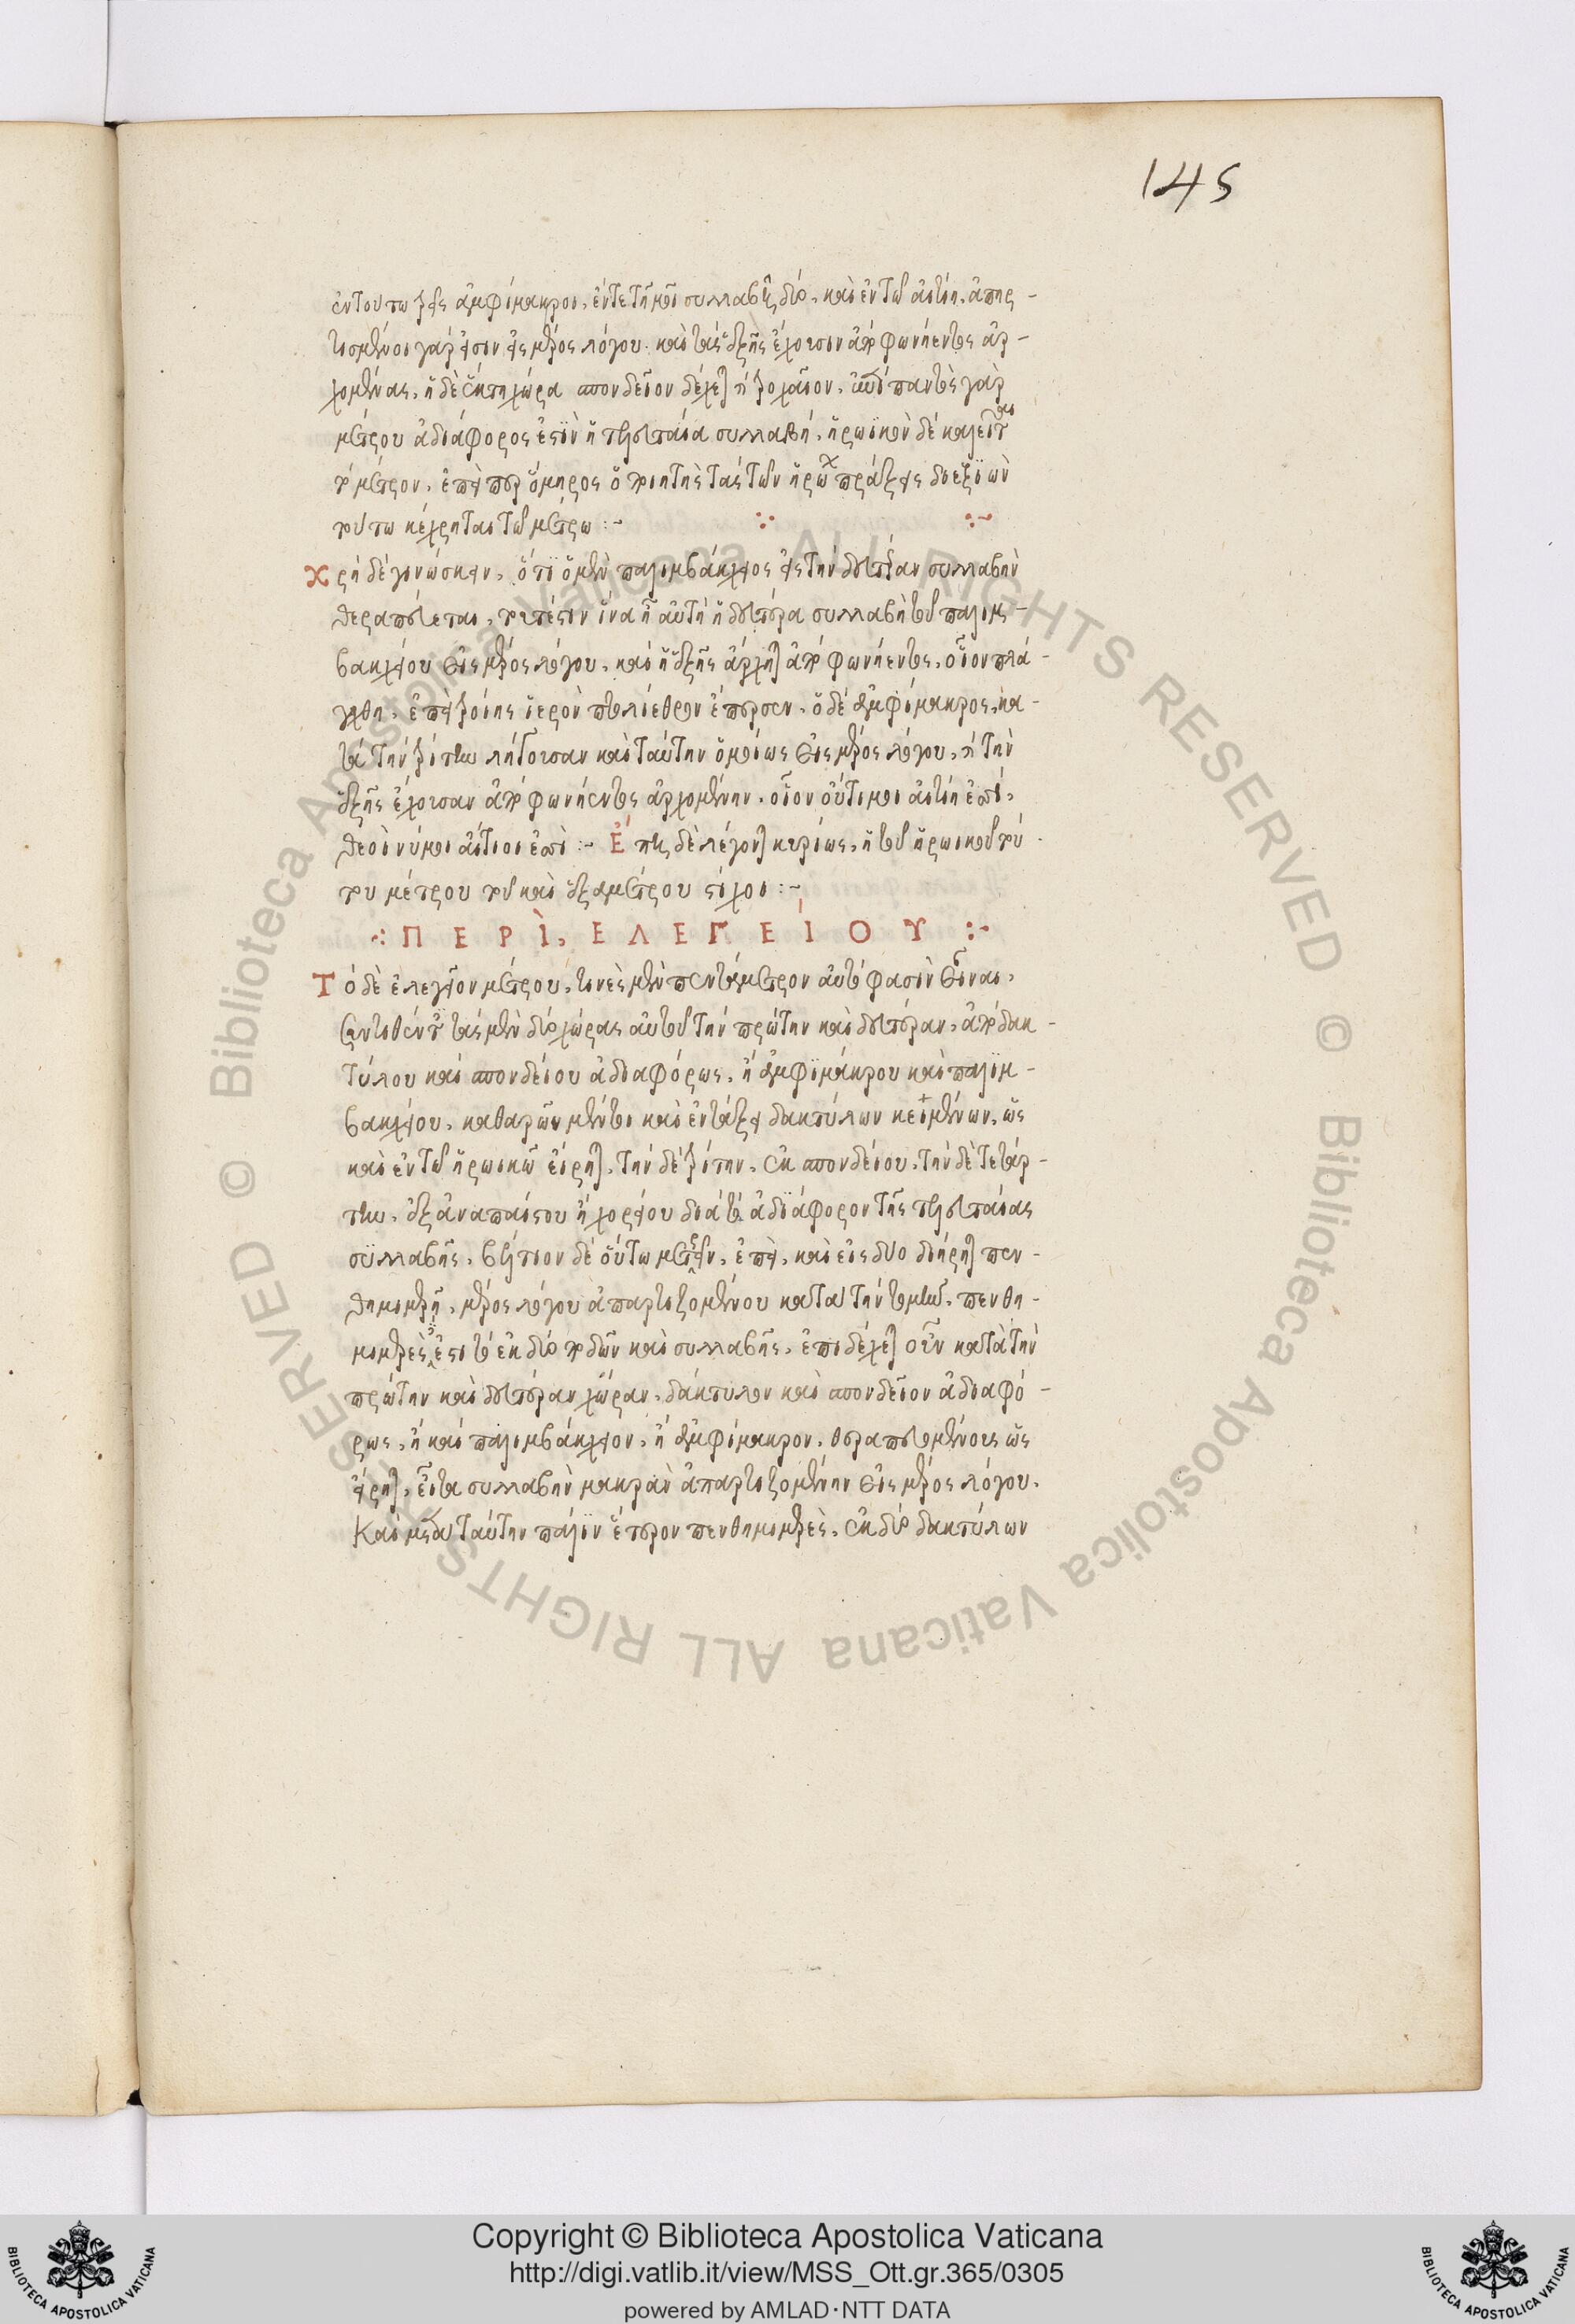 145
ἐν τούτω τρεῖς ἀμφίμακροι, ἔν τε τῆ μοι συλλαβῆ, δύο, καὶ ἐν τῶ αἰτίη. ἀπηρ-
τισμένοι γάρ εἰσιν εἰς μέρος λόγου. καὶ τὰς ἑξῆς ἔχουσιν ἀπὸ φωνήεντος ἀρ-
χομένας. ἡ δὲ ἕκτη χώρα σπονδεῖον δέχεται ἢ τροχαῖον. παντὸς γὰρ
μέτρου ἀδιάφορός ἐστιν ἡ τελευταία συλλαβή. ἡρωϊκὸν δὲ καλεῖται
τὸ μέτρον, ἐπεὶ περ ὅμηρος ὁ ποιητὴς τὰς τῶν ἡρώων πράξεις διεξϊὼν
τούτω κέχρηται τῶ μέτρω :-
Χρὴ δὲ γινώσκειν, ὅτι ὁ μὲν παλιμβάκχειος εἰς τὴν δευτέραν συλλαβὴν
θεραπεύεται, τουτέστιν ἵνα ἦ αὐτὴ ἡ δευτέρα συλλαβὴ τοῦ παλιμ-
βακχείου εἰς μέρος λόγου, καὶ ἡ ἑξῆς ἄρχηται ἀπὸ φωνήεντος, οἷον πλά-
γχθη, ἐπεὶ τροίης ἱερὸν πτολίεθρον ἔπερσεν. ὁ δὲ ἀμφίμακρος, κα-
τὰ τὴν τρίτην λήγουσαν καὶ ταύτην ὁμοίως εἰς μέρος λόγου, ἢ τὴν
ἑξῆς ἔχουσαν ἀπὸ φωνήεντος ἀρχομένην. οἷον οὔτι μοι αἰτίη ἐσσί,
θεοὶ νύ μοι αἴτιοι εἰσὶ :- Ἔπη δὲ λέγονται κυρίως, ἢ τοῦ ἡρωικοῦ τού-
του μέτρου τοῦ καὶ ἑξαμέτρου στίχοι :-
ΠΕΡῚ, ΕΛΕΓΕΊΟΥ :-
Τὸ δὲ ἐλεγεῖον μέτρου, τινὲς μὲν πεντάμετρον αὐτό φασὶν εἶναι,
συντιθέντες τὰς μὲν δύο χώρας αὐτοῦ τὴν πρώτην καὶ δευτέραν, ἀπὸ δακ-
τύλου καὶ σπονδείου ἀδιαφόρως, ἢ ἀμφϊμάκρου καὶ παλϊμ-
βακχείου. καθαρῶν μέντοι καὶ ἐν τάξει δακτύλων κειμένων, ὡς
καὶ ἐν τῶ ἡρωικῶ εἴρηται. τὴν δὲ τρίτην, ἐκ σπονδείου. τὴν δὲ τετάρ-
την, ἐξ ἀναπαίστου ἢ χορείου διὰ τὸ ἀδϊάφορον τῆς τελευταίας
συλλαβῆς. βέλτιον δὲ οὕτω μετρεῖν, ἐπεὶ, καὶ εἰς δυο διήρηται πεν-
θημιμερῆ, μέρος λόγου ἀπαρτιζομένου κατὰ τὴν τομὴν. πενθη-
μιμερὲς ἐστι τὸ ἐκ δύο ποδῶν καὶ συλλαβῆς. ἐπιδέχεται οὖν κατὰ τὴν
πρώτην καὶ δευτέραν χώραν, δάκτυλον καὶ σπονδεῖον ἀδιαφό-
ρως, ἢ καὶ παλιμβάκχειον, ἢ ἀμφίμακρον, θεραπευομένους ὡς
εἴρηται, εἶτα συλλαβὴν μακρὰν ἀπαρτιζομένην εἰς μέρος λόγου.
Καὶ μετὰ ταύτην πάλϊν ἕτερον πενθημιμερὲς, ἐκ δύο δακτύλων
Copyright © Biblioteca Apostolica Vaticana
http://digi.vatlib.it/view/MSS_Ott.gr.365/0305
powered by AMLAD·NTT DATA
BIBLIOTECA APOSTOLICA VATICANA
BIBLIOTECA APOSTOLICA VATICANA
© Biblioteca Apostolica Vaticana ALL RIGHTS RESERVED © Biblioteca Apostolica Vaticana ALL RIGHTS RESERVED